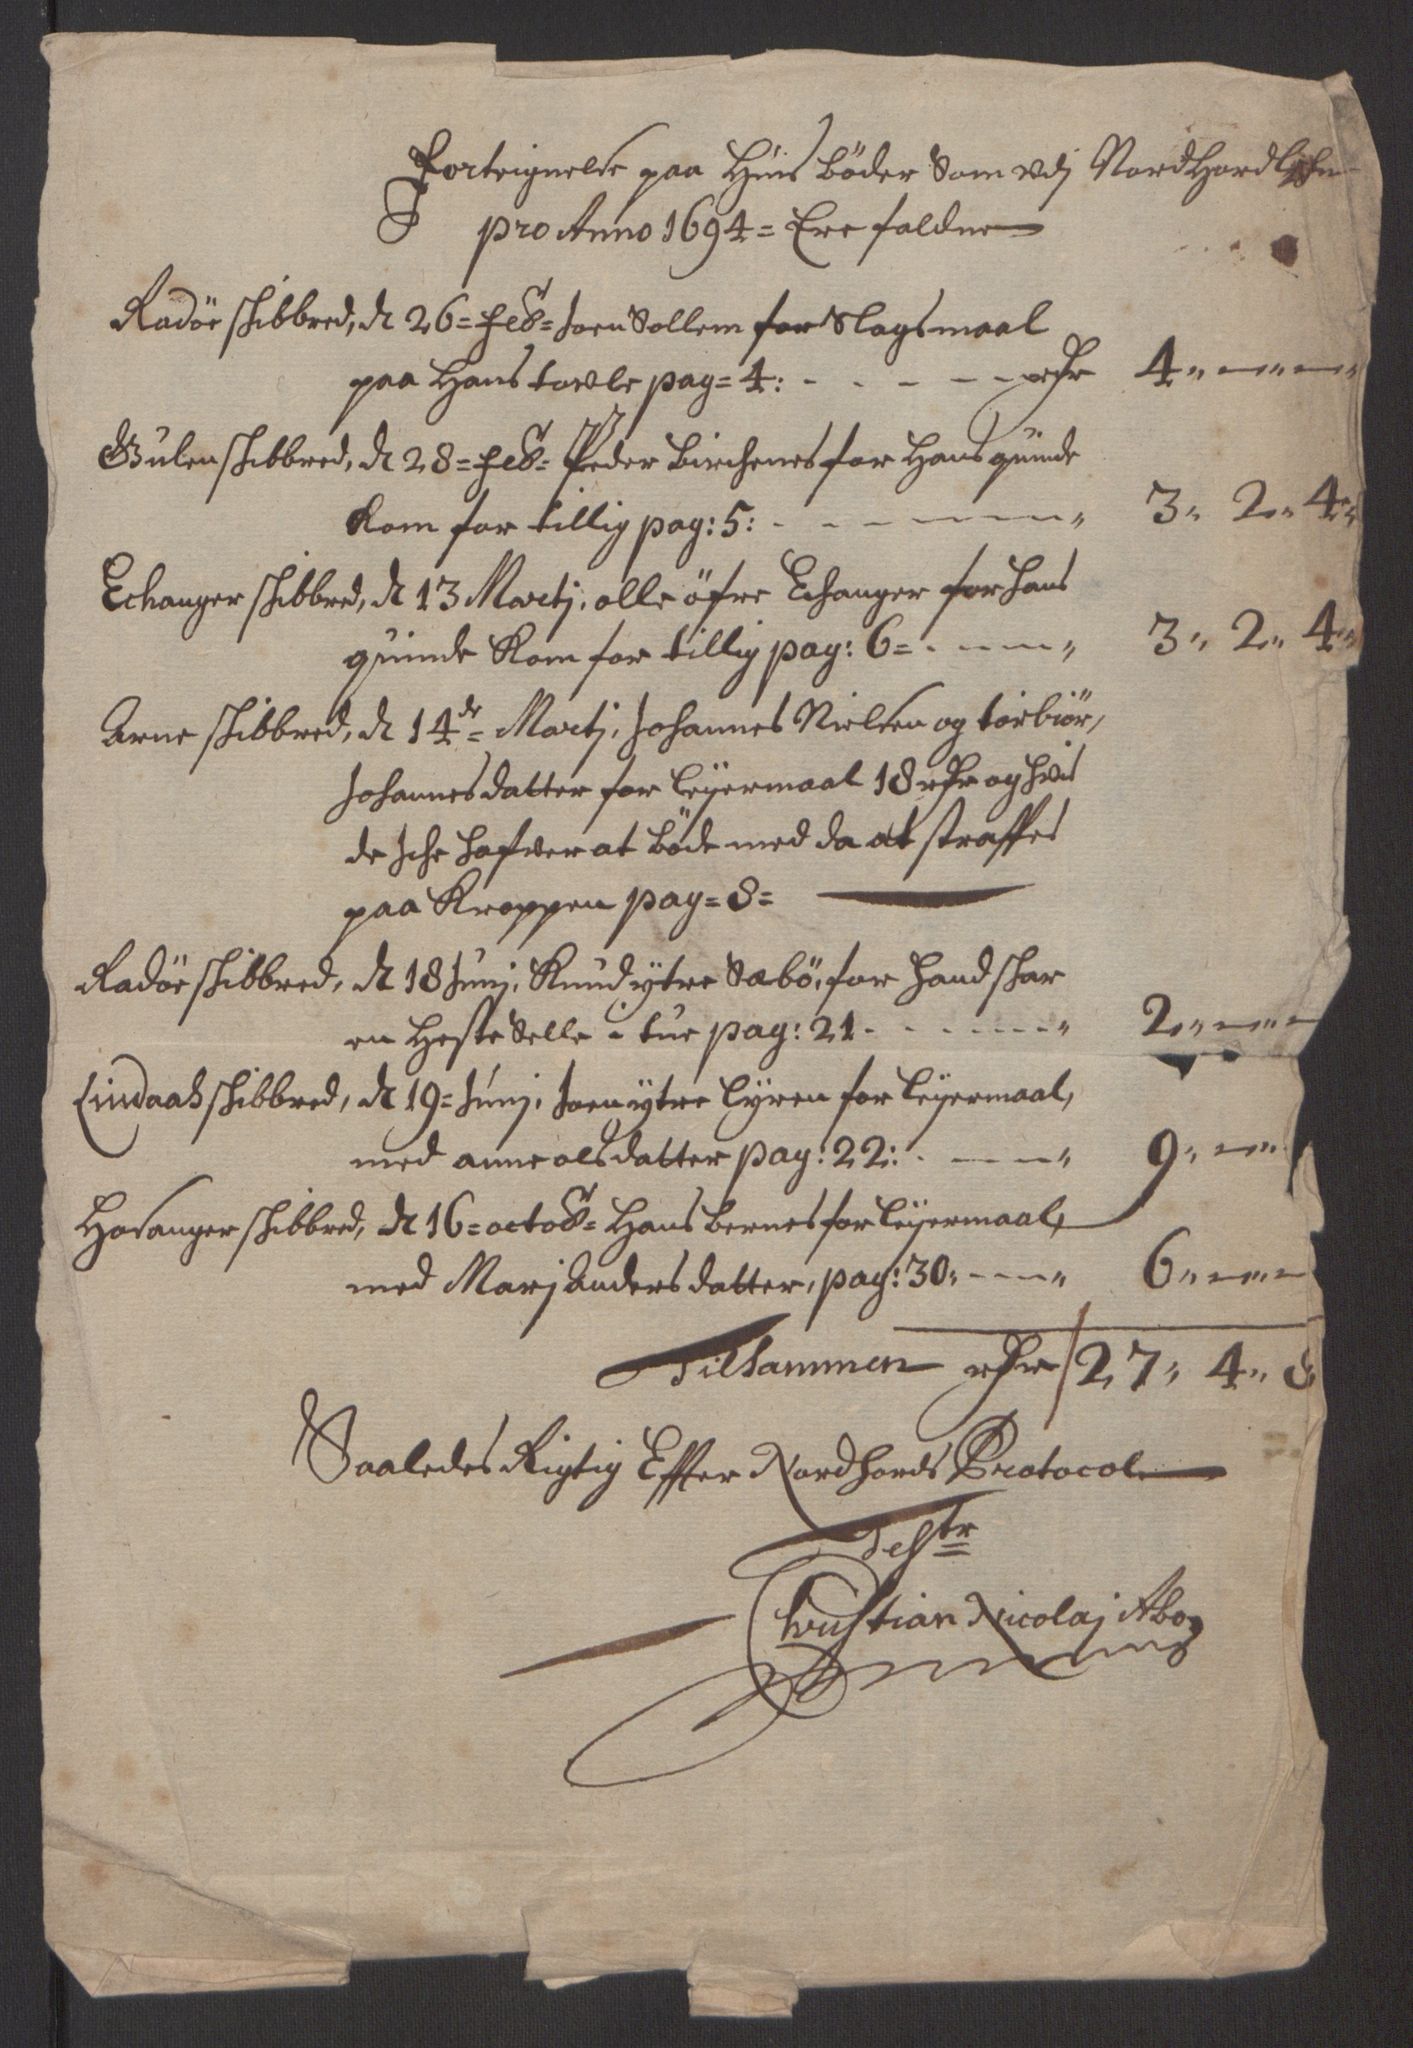 Forteignelse paa Huis bøder Som udj Nordhordlehn
pro Anno 1694 = Ere faldne
Radöe skibbred, d 26 = feb = Joen Sollem for Slagsmaal
paa Hans towle pag = 4: - - - - - Rdr 4 „ — „ —
Gulen skibbred, d 28 = feb = Peder Birchenes for Hans quinde
kom for tillig pag: 5: - - - - „ 3 „ 2 „ 4 „
Echanger skibbred, d 13 Martj, olle öfre Echanger for hans
quinde kom for tillig pag: 6 = - - - „ 3 „ 2 „ 4 „
Arne skibbred, d 14de = Martj, Johannes Nielsen og torbiör,
Johannesdatter for leyermaal 18 Rdr og hvis
de Iche hafver at böde med da at straffes
paa Kroppen pag = 8 =
Radöe skibbred, d 18 Junj, Knud ytre Sæbö, for hand skar
en Heste Selle i tue pag: 21 - - - - „ 2 „ — „ —
Lindaas skibbred, d 19 = Junj, Joen ytre lyren for leyermaal,
med anne olsdatter pag: 22: - - - „ 9 „ — „
Hosanger skibbred, d 16 = octob = Hans Bernes for leyermaal,
med Marj Andersdatter, pag: 30 „ - - - „ 6 „ — „ —
Tilsammen Rdr 27 „ 4 „ 8
Saaledes Rigtig Effter Nordhords Protocol
Testr
Christian Nicolaj Abo